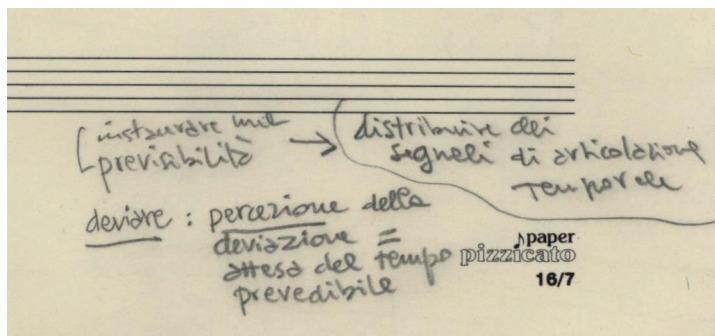 instaurare una
previsibilità
→ distribuire dei
segnali di articolazione
temporale
deviare : percezione della
deviazione =
attesa del tempo
prevedibile
paper
pizzicato
16/7